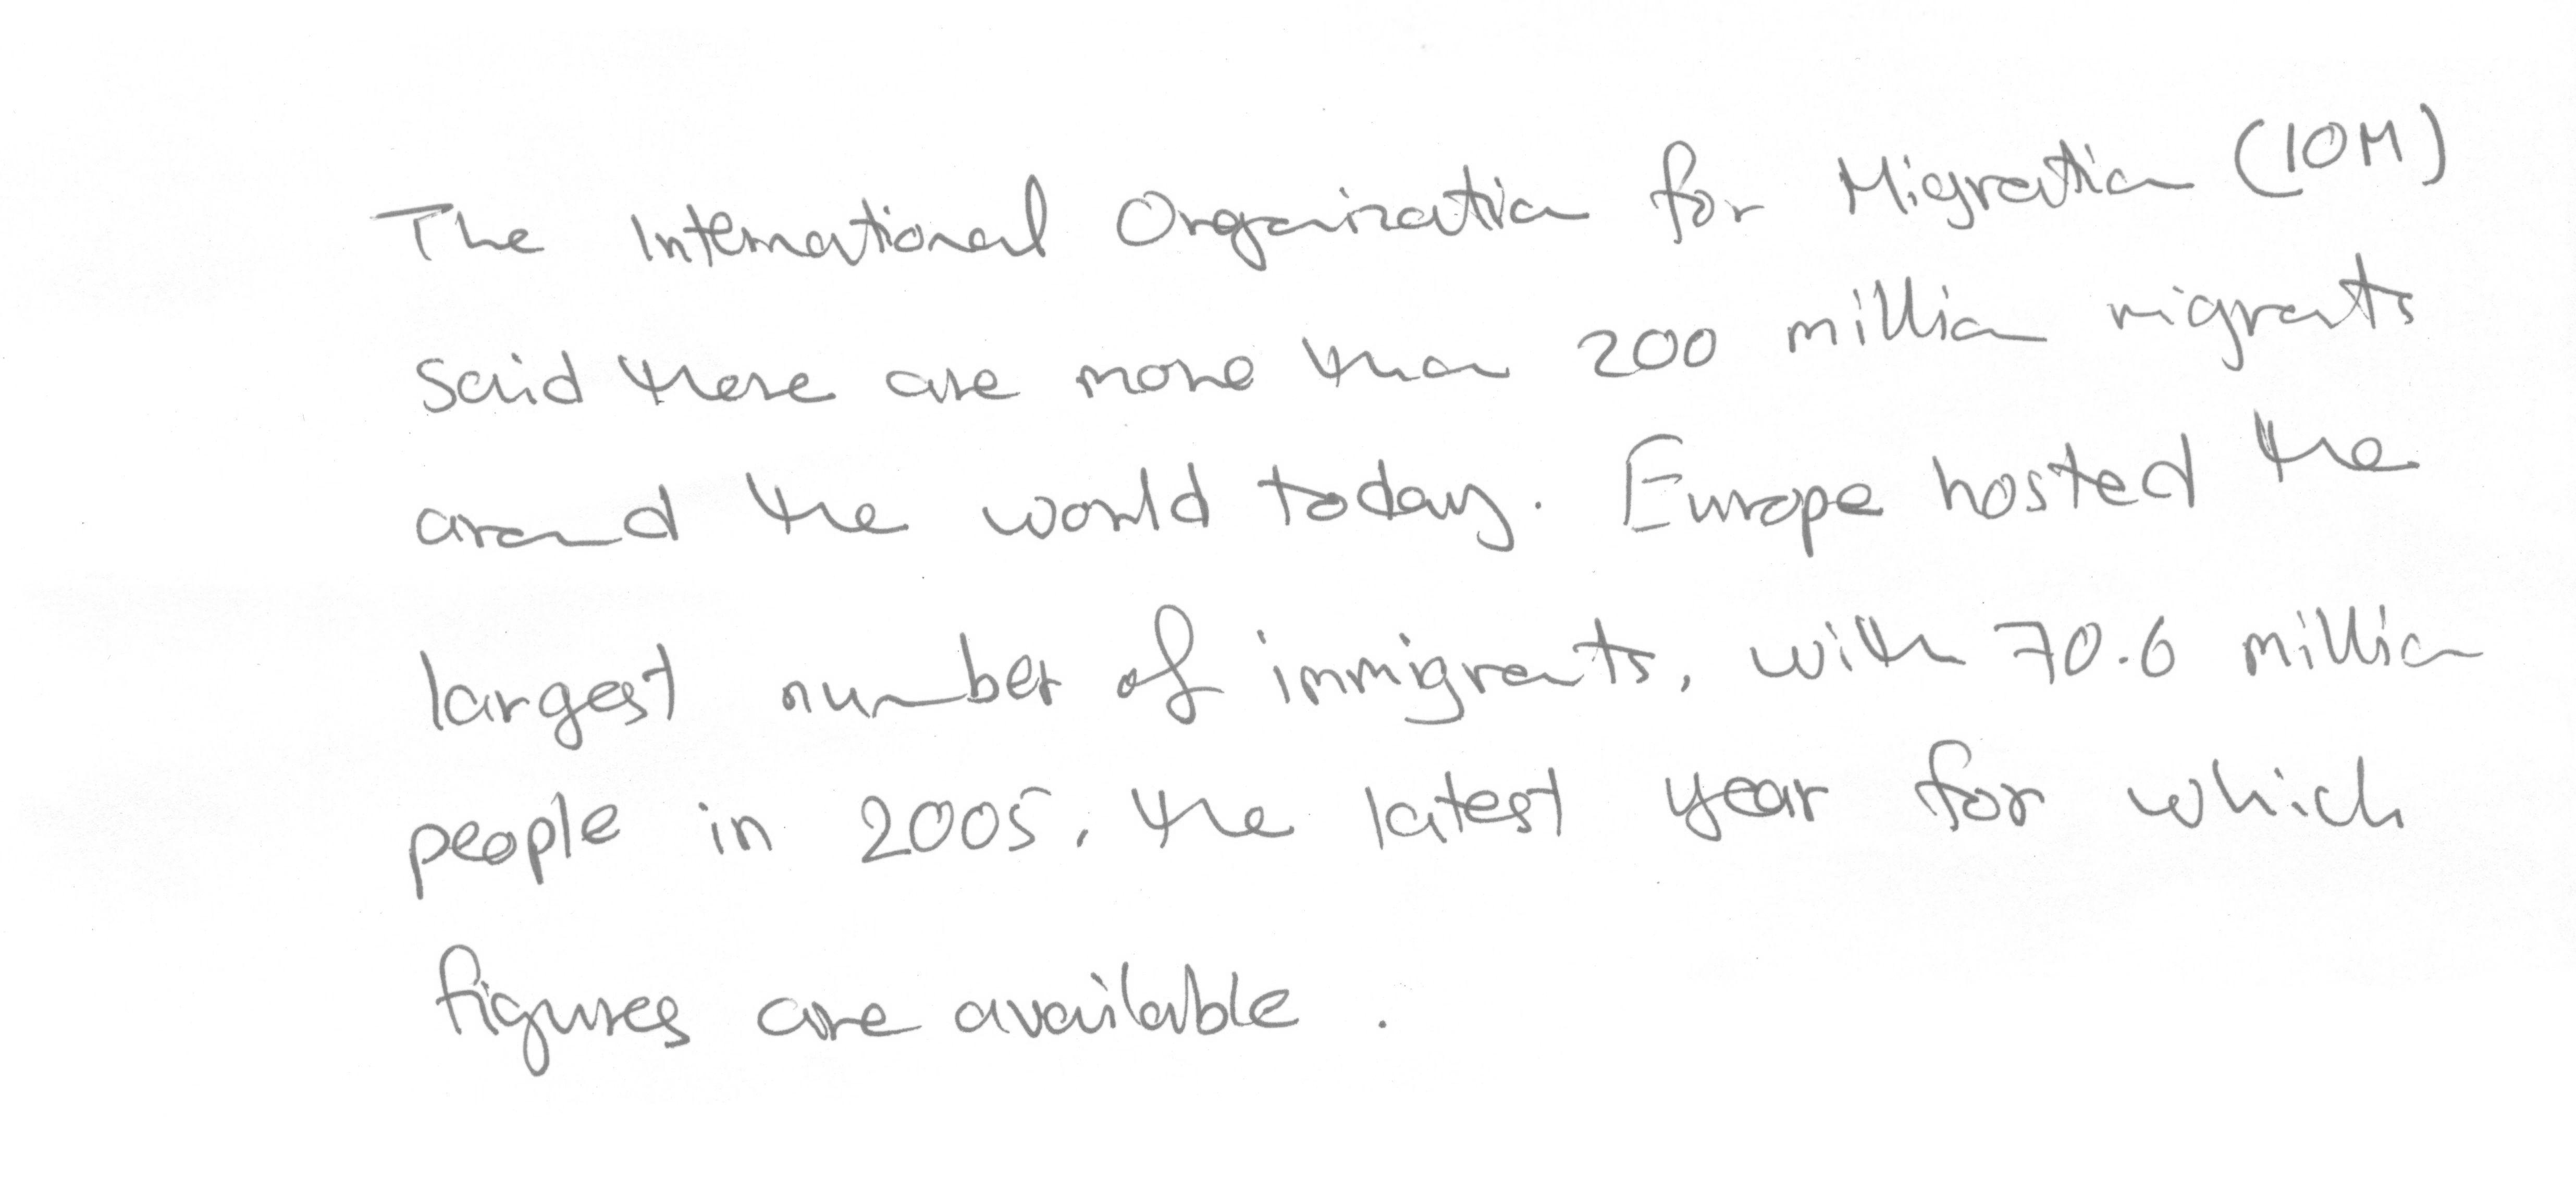 The International Organization for Migration (IOM)
said there are more than 200 million migrants
around the world today. Europe hosted the
largest number of immigrants, with 70.6 million
people in 2005, the latest year for which
figures are available.